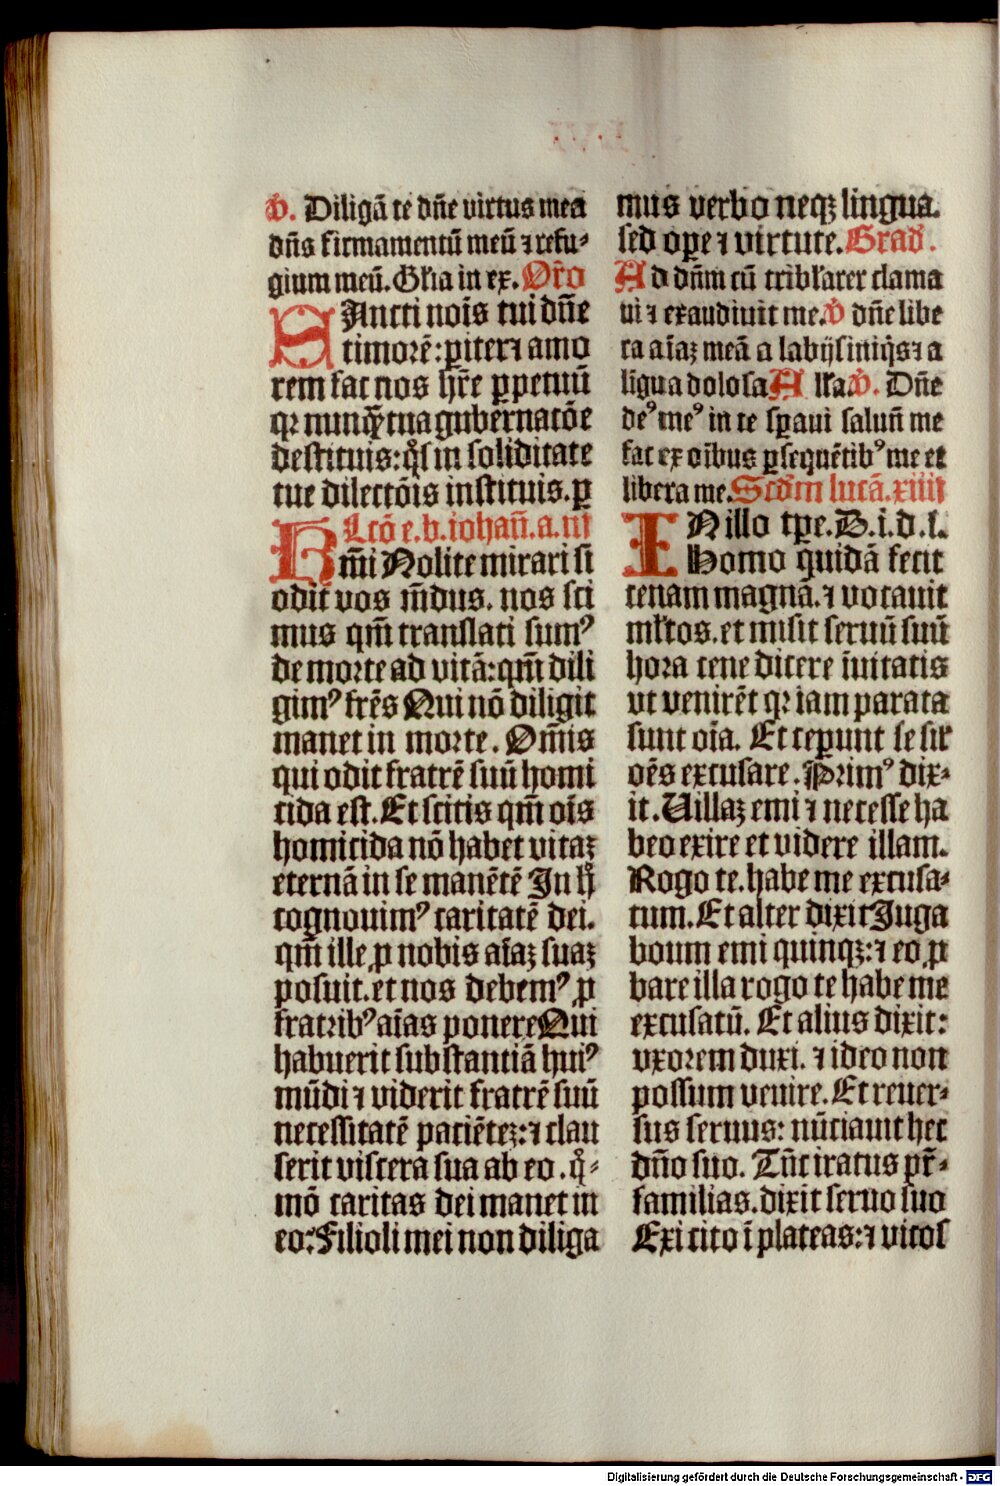 v̄. Diligā te dn̄e virtus mea
dn̄s firmamentū meū ⁊ refu⸗
gium meū. Gl'ia in ex. Or̄o
SAncti nois̄ tui dn̄e
timorē: piter⁊ amo
rem fac nos hr̄e ꝑpetuū
qꝛ nunqꝫ tua gubernatōe
destituis: q̊s in soliditate
tue dilectōis instituis. ꝑ
Lcō e. b. iohan̄. a. iii
KRm̄i Nolite mirari si
odit vos m̄dus. nos sci
mus qm̄ translati sumꝰ
de morte ad vitā: qm̄ dili
gimꝰ fr̄es Qui nō diligit
manet in morte. Om̄is
qui odit fratrē suū homi
cida est. Et scitis qm̄ ois̄
homicida nō habet vitaꝫ
eternā in se manētē In h̊
cognouimꝰ caritatē dei.
qm̄ ille ꝓ nobis aīaꝫ suaꝫ
posuit. et nos debemꝰ ꝓ
fratribꝰ aīas ponere Qui
habuerit substantiā huiꝰ
mūdi ⁊ viderit fratrē suū
necessitatē paciēteꝫ: ⁊ clau
serit viscera sua ab eo. q̊⸗
mō caritas dei manet in
eo: Filioli mei non diliga
mus verbo neqꝫ lingua.
sed oꝑe ⁊ virtute. Grad̄.
Ad dn̄m cū tribl'arer clama
ui ⁊ exaudiuit me. v̄ dn̄e libe
ra aīaꝫ meā a labijs iniq̄s ⁊ a
līgua dolosa All'a v̄. Dn̄e
deꝰ meꝰ in te sꝑaui saluū me
fac ex oībus ꝑsequētibꝰ me et
libera me. Scd̄m lucā. xiiii
IN illo tꝑe. D. i. d. s.
Homo quidā fecit
cenam magnā. ⁊ vocauit
ml'tos. et misit seruū suū
hora cene dicere īuitatis
vt venirēt qꝛ iam parata
sunt oīa. Et ceꝑunt se sil'
oēs excusare. Primꝰ dix⸗
it. Villaꝫ emi ⁊ necesse ha
beo exire et videre illam.
Rogo te. habe me excusa⸗
tum. Et alter dixit Iuga
boum emi quinqꝫ: ⁊ eo ꝓ
bare illa rogo te habe me
excusatū. Et alius dixit:
vxorem duxi. ⁊ ideo non
possum venire. Et reuer⸗
sus seruus: nūciauit hec
dn̄o suo. Tūc iratus pr̄⸗
familias. dixit seruo suo
Exi cito ī plateas: ⁊ vicos
Digitalisierung gefördert durch die Deutsche Forschungsgemeinschaft - DFG